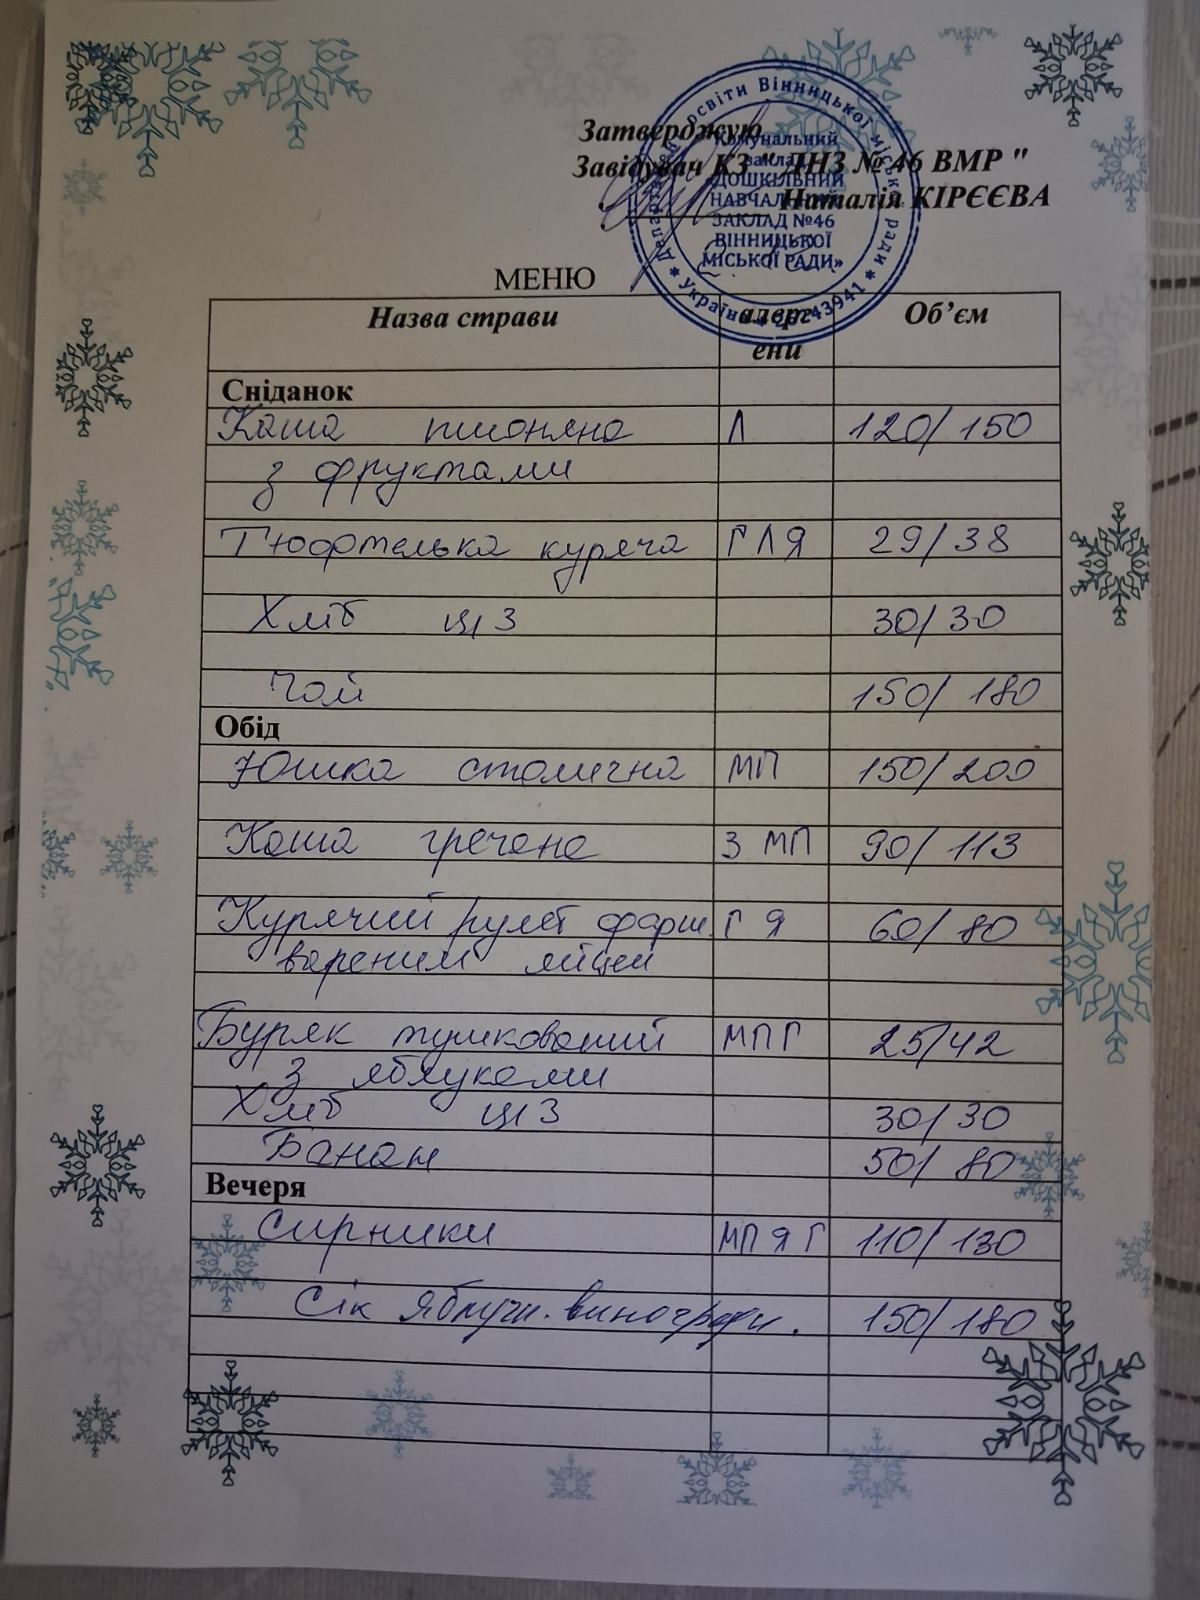 Затверджую
Завідувач КЗ " ДНЗ № 46 ВМР "
Наталія КІРЄЄВА
Департамент освіти Вінницької міської ради * Україна * 26243941 *
Комунальний
заклад
«ДОШКІЛЬНИЙ
НАВЧАЛЬНИЙ
ЗАКЛАД №46
ВІННИЦЬКОЇ
МІСЬКОЇ РАДИ»
МЕНЮ
Назва страви алерг Об’єм
ени
Сніданок
Каша пшоняна Л 120/150
з фруктами
Тюфтелька куряча ГЛЯ 29/38
Хліб ЦЗ 30/30
Чай 150/180
Обід
Юшка столична МП 150/200
Каша гречана З МП 90/113
Курячий рулет фарш. Г Я 60/80
вареним яйцем
Буряк тушкований МПГ 25/42
з яблуками
Хліб ЦЗ 30/30
Банан 50/80
Вечеря
Сирники МП Я Г 110/130
Сік яблучн. виноградн. 150/180